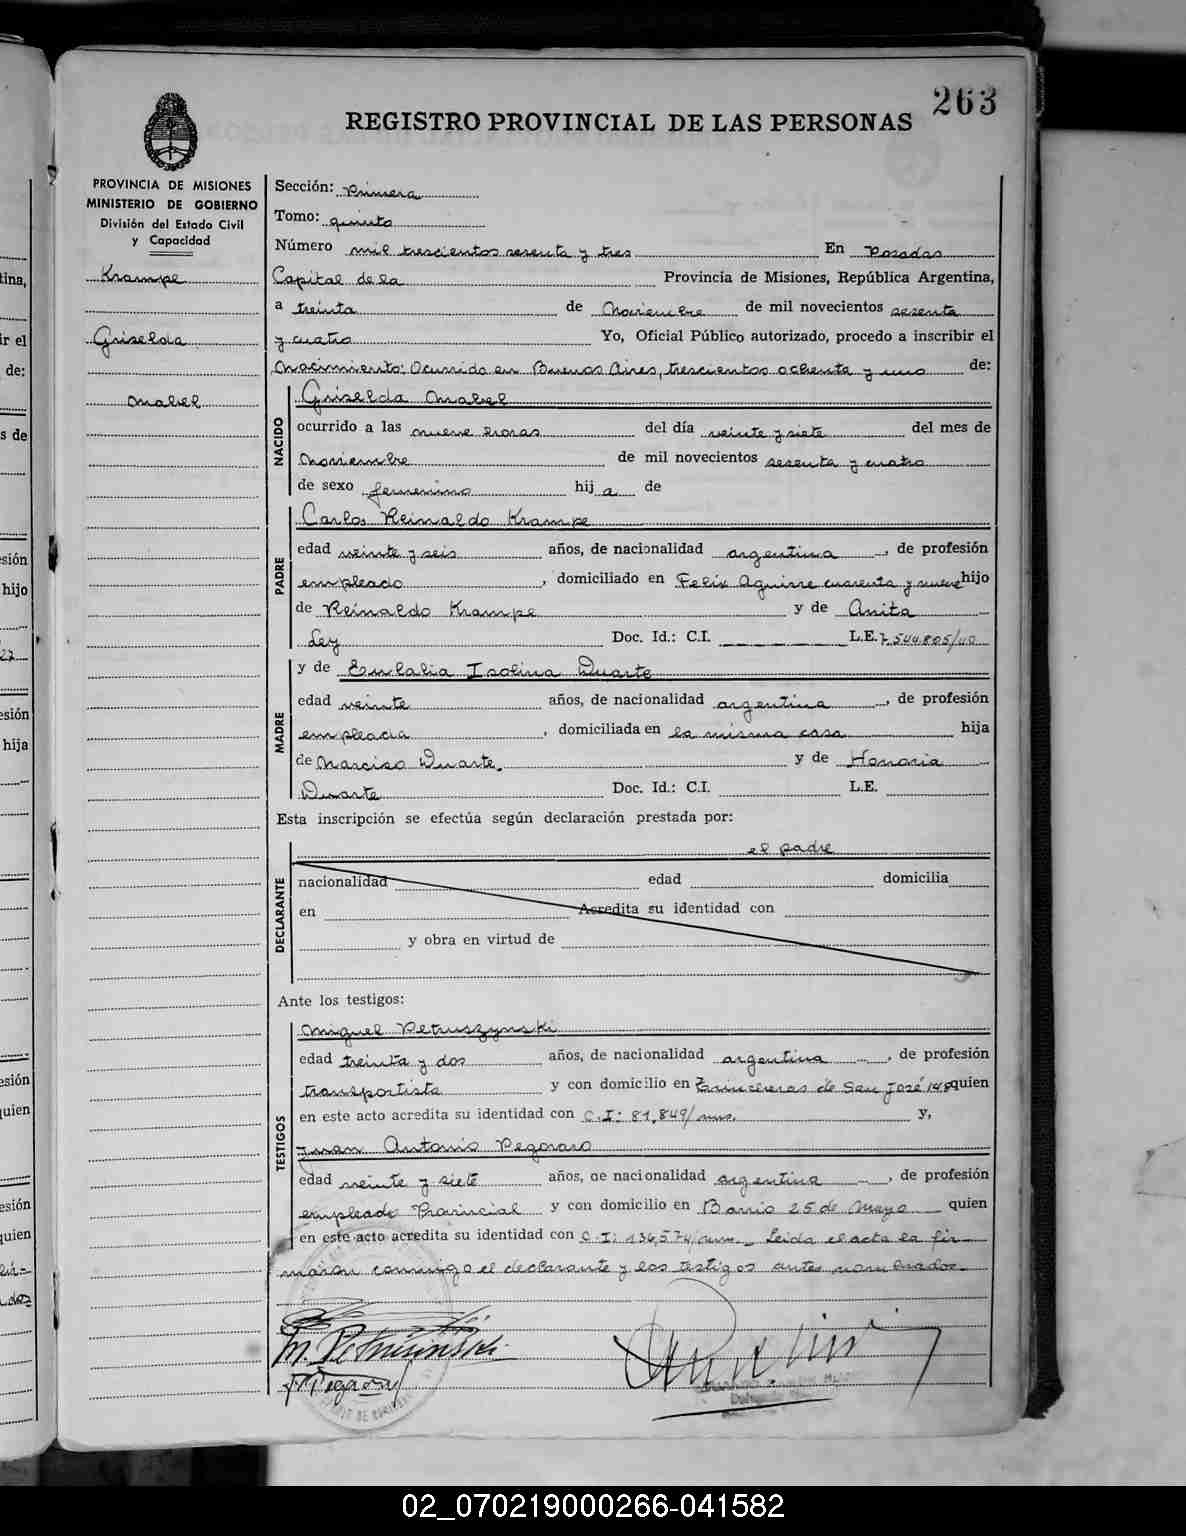 263
REGISTRO PROVINCIAL DE LAS PERSONAS
PROVINCIA DE MISIONES
MINISTERIO DE GOBIERNO
División del Estado Civil
y Capacidad
Krampe
Griselda
Mabel
Sección: Primera
Tomo: quinto
Número mil trescientos sesenta y tres En Posadas
Capital de la Provincia de Misiones, República Argentina,
a treinta de Noviembre de mil novecientos sesenta
y cuatro Yo, Oficial Público autorizado, procedo a inscribir el
Nacimiento: Ocurrido en Buenos Aires, trescientos ochenta y uno de:
NACIDO
Griselda Mabel
ocurrido a las nueve horas del día veinte y siete del mes de
Noviembre de mil novecientos sesenta y cuatro
de sexo femenino hij a de
PADRE
Carlos Reinaldo Krampe
edad veinte y seis años, de nacionalidad argentina, de profesión
empleado, domiciliado en Felix Aguirre cuarenta y nueve hijo
de Reinaldo Krampe y de Anita
Ley Doc. Id.: C.I. L.E. 7.544.805/40
MADRE
y de Eulalia Isolina Duarte
edad veinte años, de nacionalidad argentina, de profesión
empleada, domiciliada en la misma casa hija
de Narciso Duarte. y de Honoria
Duarte Doc. Id.: C.I. L.E.
Esta inscripción se efectúa según declaración prestada por:
el padre
DECLARANTE
nacionalidad edad domicilia
en Acredita su identidad con
y obra en virtud de
Ante los testigos:
TESTIGOS
Miguel Petruszynski
edad treinta y dos años, de nacionalidad argentina, de profesión
transportista y con domicilio en Trincheras de San José 148 quien
en este acto acredita su identidad con C.I: 81.849/mnes. y,
Juan Antonio Pegoraro
edad veinte y siete años, de nacionalidad argentina, de profesión
empleado Provincial y con domicilio en Barrio 25 de Mayo quien
en este acto acredita su identidad con C.I: 136,574/mnes. Leida el acta la fir-
maron conmigo el declarante y los testigos antes nombrados.
M. Petruszinski
02_070219000266-041582